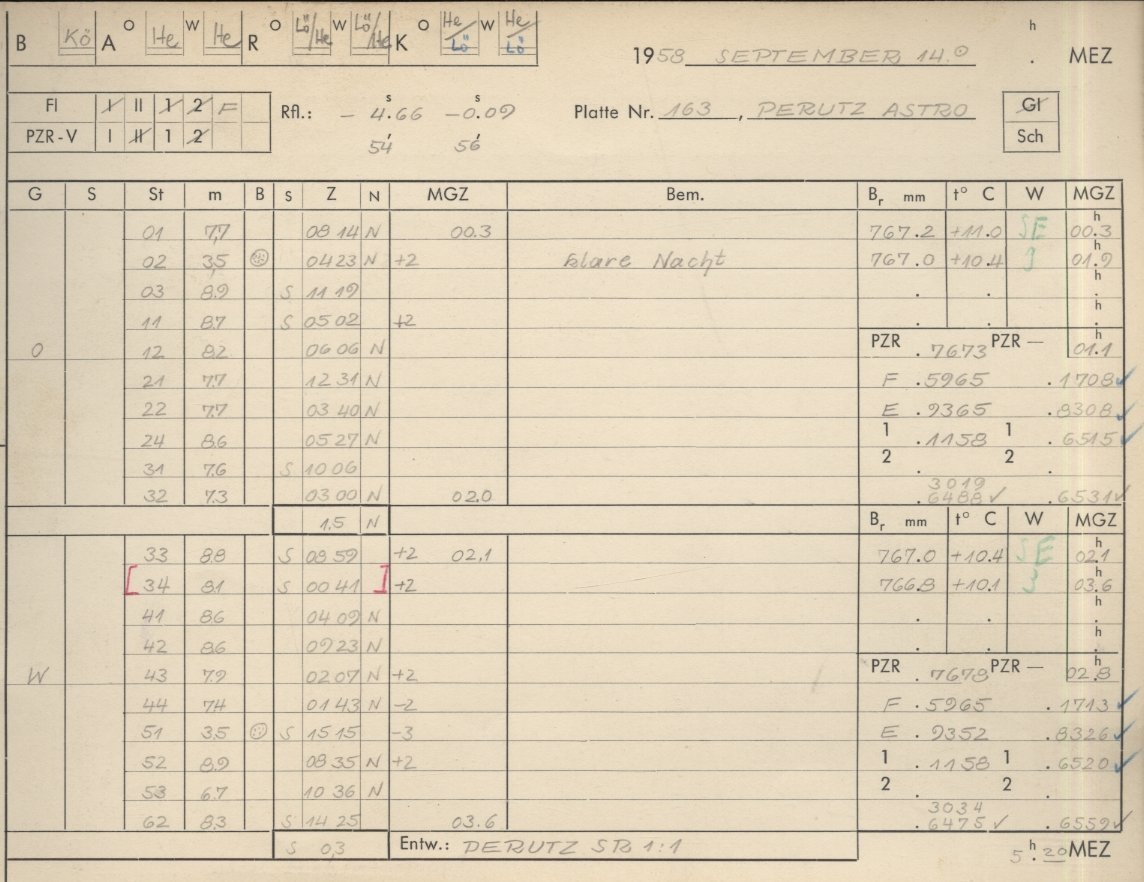 B Kö A O He W He R O Lö/He W Lö/He K O He/Lö W He/Lö
1958 SEPTEMBER 14. h . MEZ
FI I II 1 2 F
PZR-V I II 1 2
Rfl.: - 4.66 s -0.09 s
54 56
Platte Nr. 163, PERUTZ ASTRO
Gl
Sch
G S St m B S Z N MGZ Bem. Br mm t° C W MGZ
01 7.7 08 14 N 00.3 767.2 +11.0 SE 00.3 h
02 3.5 04 23 N +2 klare Nacht 767.0 +10.4 3 01.9 h
03 8.9 S 11 19 . . . h
11 8.7 S 05 02 +2 . . . h
O 12 8.2 06 06 N PZR .7673 PZR — 01.1 h
21 7.7 12 31 N F .5965 .1708 ✓
22 7.7 03 40 N E .9365 .8308 ✓
24 8.6 05 27 N 1 .1158 1 .6515 ✓
31 7.6 S 10 06 2 2 .
32 7.3 03 00 N 02.0 3019 .6488 ✓ .6531 ✓
1,5 N Br mm t° C W MGZ
33 8.8 S 08 59 +2 02,1 767.0 +10.4 SE 02.1 h
[ 34 8.1 S 00 41 ] +2 766.8 +10.1 3 03.6 h
41 8.6 04 09 N . . . h
42 8.6 09 23 N . . . h
W 43 7.9 02 07 N +2 PZR .7678 PZR — 02.8 h
44 7.4 01 43 N -2 F .5965 .1713 ✓
51 3.5 S 15 15 -3 E .9352 .8326 ✓
52 8.9 08 35 N +2 1 .1158 1 .6520 ✓
53 6.7 10 36 N 2 2 .
62 8.3 S 14 25 03.6 3034 .6475 ✓ .6559 ✓
S 0,3 Entw.: PERUTZ SR 1:1 5 h .20 MEZ